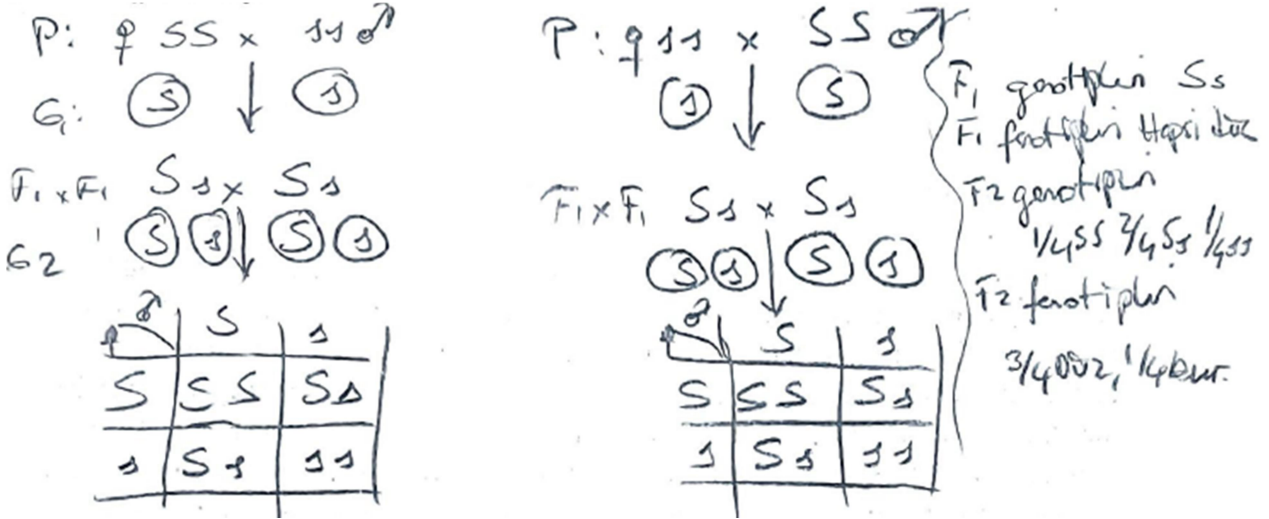 P: ♀ SS x ss ♂
G1: S s
F1 x F1 Ss x Ss
G2 S s S s
♀ ♂ S s
S SS Ss
s Ss ss
P: ♀ ss x SS ♂
s S
F1 x F1 Ss x Ss
S s S s
♀ ♂ S s
S SS Ss
s Ss ss
F1 genotipleri Ss
F1 fenotipleri Hepsi düz
F2 genotipleri
1/4SS 2/4Ss 1/4ss
F2 fenotipleri
3/4 Düz, 1/4 bur.